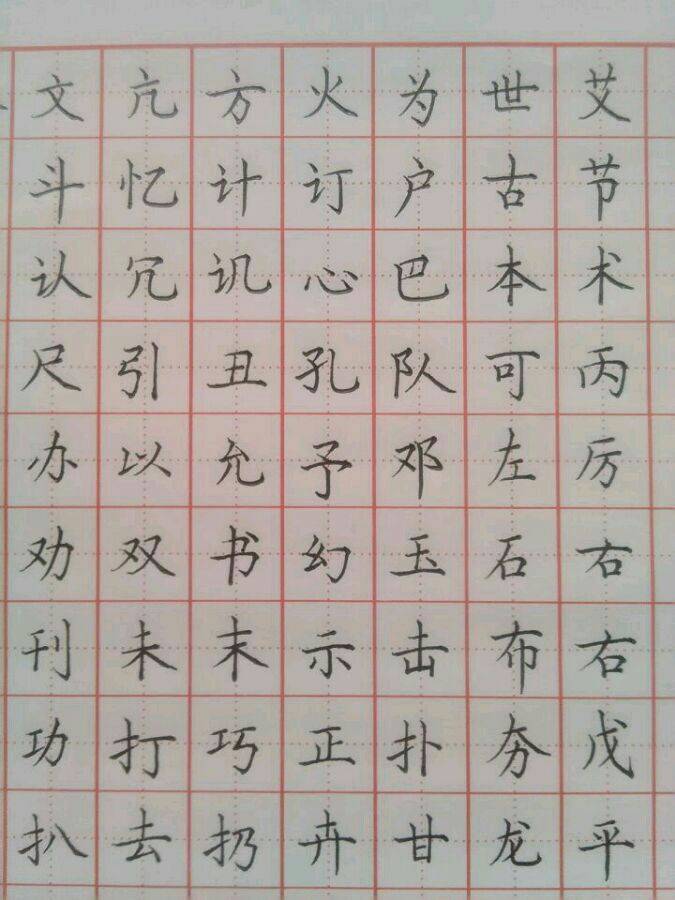 文亢方火为世艾
斗忆计订户古节
认冗讥心巴本术
尺引丑孔队可丙
办以允予邓左厉
劝双书幻玉石右
刊未末示击布右
功打巧正扑夯戊
扒去扔卉甘龙平